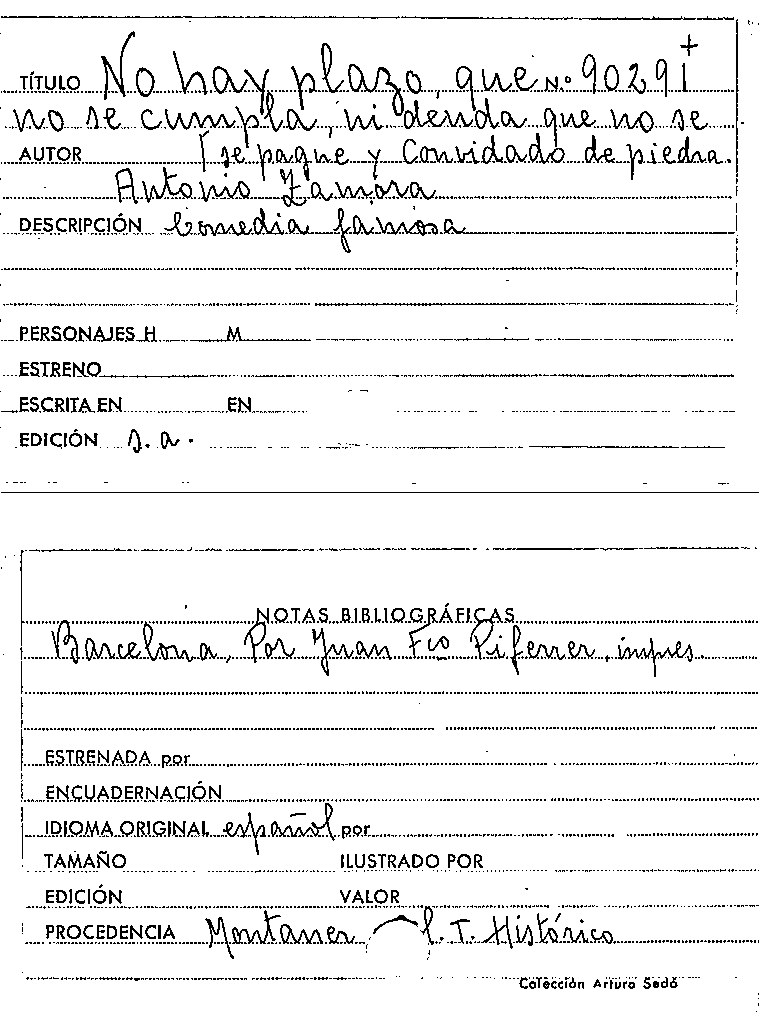 TÍTULO No hay plazo, que N.º 90291+
no se cumpla, ni deuda que no se
AUTOR [se pague y Convidado de piedra.
Antonio Zamora
DESCRIPCIÓN Comedia famosa
PERSONAJES H M
ESTRENO
ESCRITA EN EN
EDICIÓN s.a.
NOTAS BIBLIOGRÁFICAS
Barcelona, Por Juan Fco Piferrer, impres.
ESTRENADA por
ENCUADERNACIÓN
IDIOMA ORIGINAL español por
TAMAÑO ILUSTRADO POR
EDICIÓN VALOR
PROCEDENCIA Montaner T. Histórico
Colección Arturo Sedó